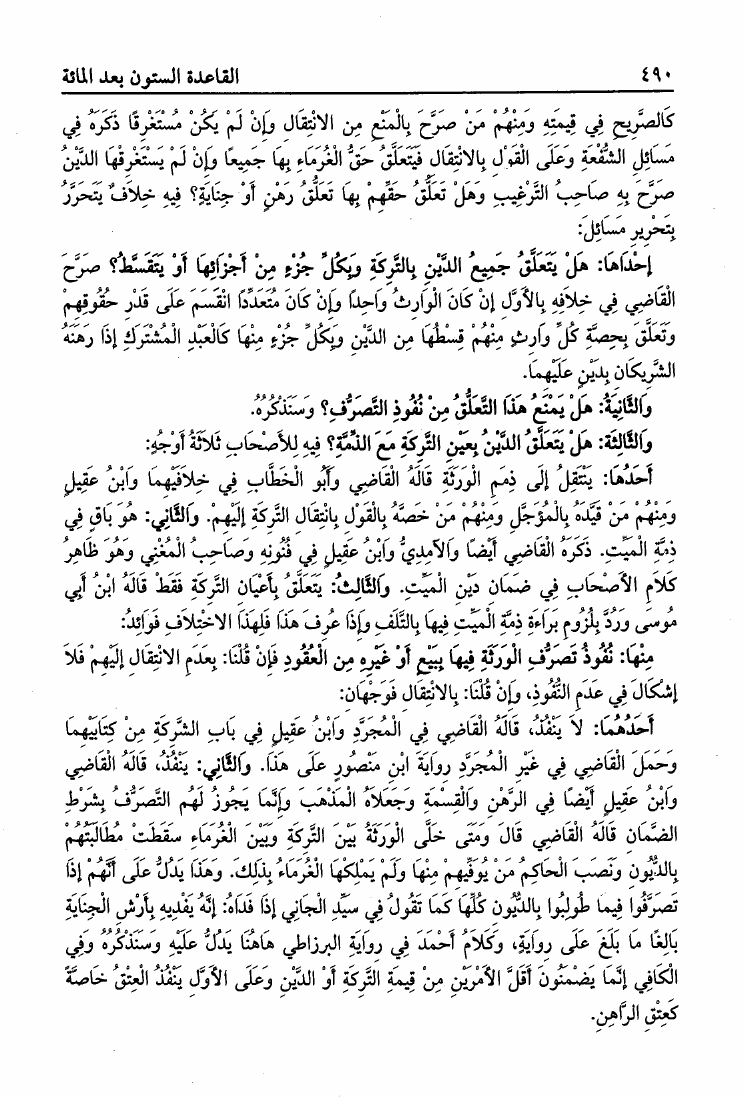 ٤٩٠ القاعدة الستون بعد المائة
كَالصَّرِيحِ فِي قِيمَتِهِ وَمِنْهُمْ مَنْ صَرَّحَ بِالْمَنْعِ مِن الانْتِقَالِ وَإِنْ لَمْ يَكُنْ مُسْتَغْرِقًا ذَكَرَهُ فِي
مَسَائِلِ الشُّفْعَةِ وَعَلَى الْقَوْلِ بِالانْتِقَالِ فَيَتَعَلَّقُ حَقُّ الْغُرَمَاءِ بِهَا جَمِيعًا وَإِنْ لَمْ يَسْتَغْرِقْهَا الدَّيْنُ
صَرَّحَ بِهِ صَاحِبُ التَّرْغِيبِ وَهَلْ تَعَلُّقُ حَقِّهِمْ بِهَا تَعَلُّقُ رَهْنٍ أَوْ جِنَايَةٍ؟ فِيهِ خِلَافٌ يَتَحَرَّرُ
بِتَحْرِيرِ مَسَائِلَ:
إِحْدَاهَا: هَلْ يَتَعَلَّقُ جَمِيعُ الدَّيْنِ بِالتَّرِكَةِ وَبِكُلِّ جُزْءٍ مِنْ أَجْزَائِهَا أَوْ يَتَقَسَّطُ؟ صَرَّحَ
الْقَاضِي فِي خِلَافِهِ بِالأَوَّلِ إِنْ كَانَ الْوَارِثُ وَاحِدًا وَإِنْ كَانَ مُتَعَدِّدًا انْقَسَمَ عَلَى قَدْرِ حُقُوقِهِمْ
وَتَعَلَّقَ بِحِصَّةِ كُلِّ وَارِثٍ مِنْهُمْ قِسْطُهَا مِن الدَّيْنِ وَبِكُلِّ جُزْءٍ مِنْهَا كَالْعَبْدِ الْمُشْتَرَكِ إِذَا رَهَنَهُ
الشَّرِيكَانِ بِدَيْنٍ عَلَيْهِمَا.
وَالثَّانِيَةُ: هَلْ يَمْنَعُ هَذَا التَّعَلُّقُ مِنْ نُفُوذِ التَّصَرُّفِ؟ وَسَنَذْكُرُهُ.
وَالثَّالِثَةُ: هَلْ يَتَعَلَّقُ الدَّيْنُ بِعَيْنِ التَّرِكَةِ مَعَ الذِّمَّةِ؟ فِيهِ لِلأَصْحَابِ ثَلَاثَةُ أَوْجُهٍ:
أَحَدُهَا: يَنْتَقِلُ إِلَى ذِمَمِ الْوَرَثَةِ قَالَهُ الْقَاضِي وَأَبُو الْخَطَّابِ فِي خِلَافَيْهِمَا وَابْنُ عَقِيلٍ
وَمِنْهُمْ مَنْ قَيَّدَهُ بِالْمُؤَجَّلِ وَمِنْهُمْ مَنْ خَصَّهُ بِالْقَوْلِ بِانْتِقَالِ التَّرِكَةِ إِلَيْهِمْ. وَالثَّانِي: هُوَ بَاقٍ فِي
ذِمَّةِ الْمَيِّتِ. ذَكَرَهُ الْقَاضِي أَيْضًا وَالآمِدِيُّ وَابْنُ عَقِيلٍ فِي فُنُونِهِ وَصَاحِبُ الْمُغْنِي وَهُوَ ظَاهِرُ
كَلَامِ الأَصْحَابِ فِي ضَمَانِ دَيْنِ الْمَيِّتِ. وَالثَّالِثُ: يَتَعَلَّقُ بِأَعْيَانِ التَّرِكَةِ فَقَطْ قَالَهُ ابْنُ أَبِي
مُوسَى وَرُدَّ بِلُزُومِ بَرَاءَةِ ذِمَّةِ الْمَيِّتِ فِيهَا بِالتَّلَفِ وَإِذَا عُرِفَ هَذَا فَلِهَذَا الاخْتِلَافِ فَوَائِدُ:
مِنْهَا: نُفُوذُ تَصَرُّفِ الْوَرَثَةِ فِيهَا بِبَيْعٍ أَوْ غَيْرِهِ مِن الْعُقُودِ فَإِنْ قُلْنَا: بِعَدَمِ الانْتِقَالِ إِلَيْهِمْ فَلَا
إِشْكَالَ فِي عَدَمِ النُّفُوذِ، وَإِنْ قُلْنَا: بِالانْتِقَالِ فَوَجْهَانِ:
أَحَدُهُمَا: لَا يَنْفُذُ، قَالَهُ الْقَاضِي فِي الْمُجَرَّدِ وَابْنُ عَقِيلٍ فِي بَابِ الشَّرِكَةِ مِنْ كِتَابَيْهِمَا
وَحَمَلَ الْقَاضِي فِي غَيْرِ الْمُجَرَّدِ رِوَايَةَ ابْنِ مَنْصُورٍ عَلَى هَذَا. وَالثَّانِي: يَنْفُذُ، قَالَهُ الْقَاضِي
وَابْنُ عَقِيلٍ أَيْضًا فِي الرَّهْنِ وَالْقِسْمَةِ وَجَعَلَاهُ الْمَذْهَبَ وَإِنَّمَا يَجُوزُ لَهُم التَّصَرُّفُ بِشَرْطِ
الضَّمَانِ قَالَهُ الْقَاضِي قَالَ وَمَتَى خَلَّى الْوَرَثَةُ بَيْنَ التَّرِكَةِ وَبَيْنَ الْغُرَمَاءِ سَقَطَتْ مُطَالَبَتُهُمْ
بِالدُّيُونِ وَنَصَبَ الْحَاكِمُ مَنْ يُوَفِّيهِمْ مِنْهَا وَلَمْ يَمْلِكْهَا الْغُرَمَاءُ بِذَلِكَ. وَهَذَا يَدُلُّ عَلَى أَنَّهُمْ إِذَا
تَصَرَّفُوا فِيهَا طُولِبُوا بِالدُّيُونِ كُلِّهَا كَمَا تَقُولُ فِي سَيِّدِ الْجَانِي إِذَا فَدَاهُ: إِنَّهُ يَفْدِيهِ بِأَرْشِ الْجِنَايَةِ
بَالِغًا مَا بَلَغَ عَلَى رِوَايَةٍ، وَكَلَامُ أَحْمَدَ فِي رِوَايَةِ البرزاطي هَاهُنَا يَدُلُّ عَلَيْهِ وَسَنَذْكُرُهُ وَفِي
الْكَافِي إِنَّمَا يَضْمَنُونَ أَقَلَّ الأَمْرَيْنِ مِنْ قِيمَةِ التَّرِكَةِ أَوْ الدَّيْنِ وَعَلَى الأَوَّلِ يَنْفُذُ الْعِتْقُ خَاصَّةً
كَعِتْقِ الرَّاهِنِ.